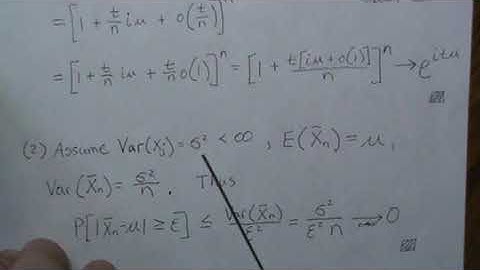 = [1 + t/n iμ + o(t/n)]^n
= [1 + t/n iμ + t/n o(1)]^n = [1 + t[iμ + o(1)]/n]^n → e^{itμ}
(2) Assume Var(X_j) = σ² < ∞, E(X̄_n) = μ,
Var(X̄_n) = σ²/n. Thus
P[|X̄_n - μ| ≥ ε] ≤ Var(X̄_n)/ε² = σ²/(ε² n) → 0